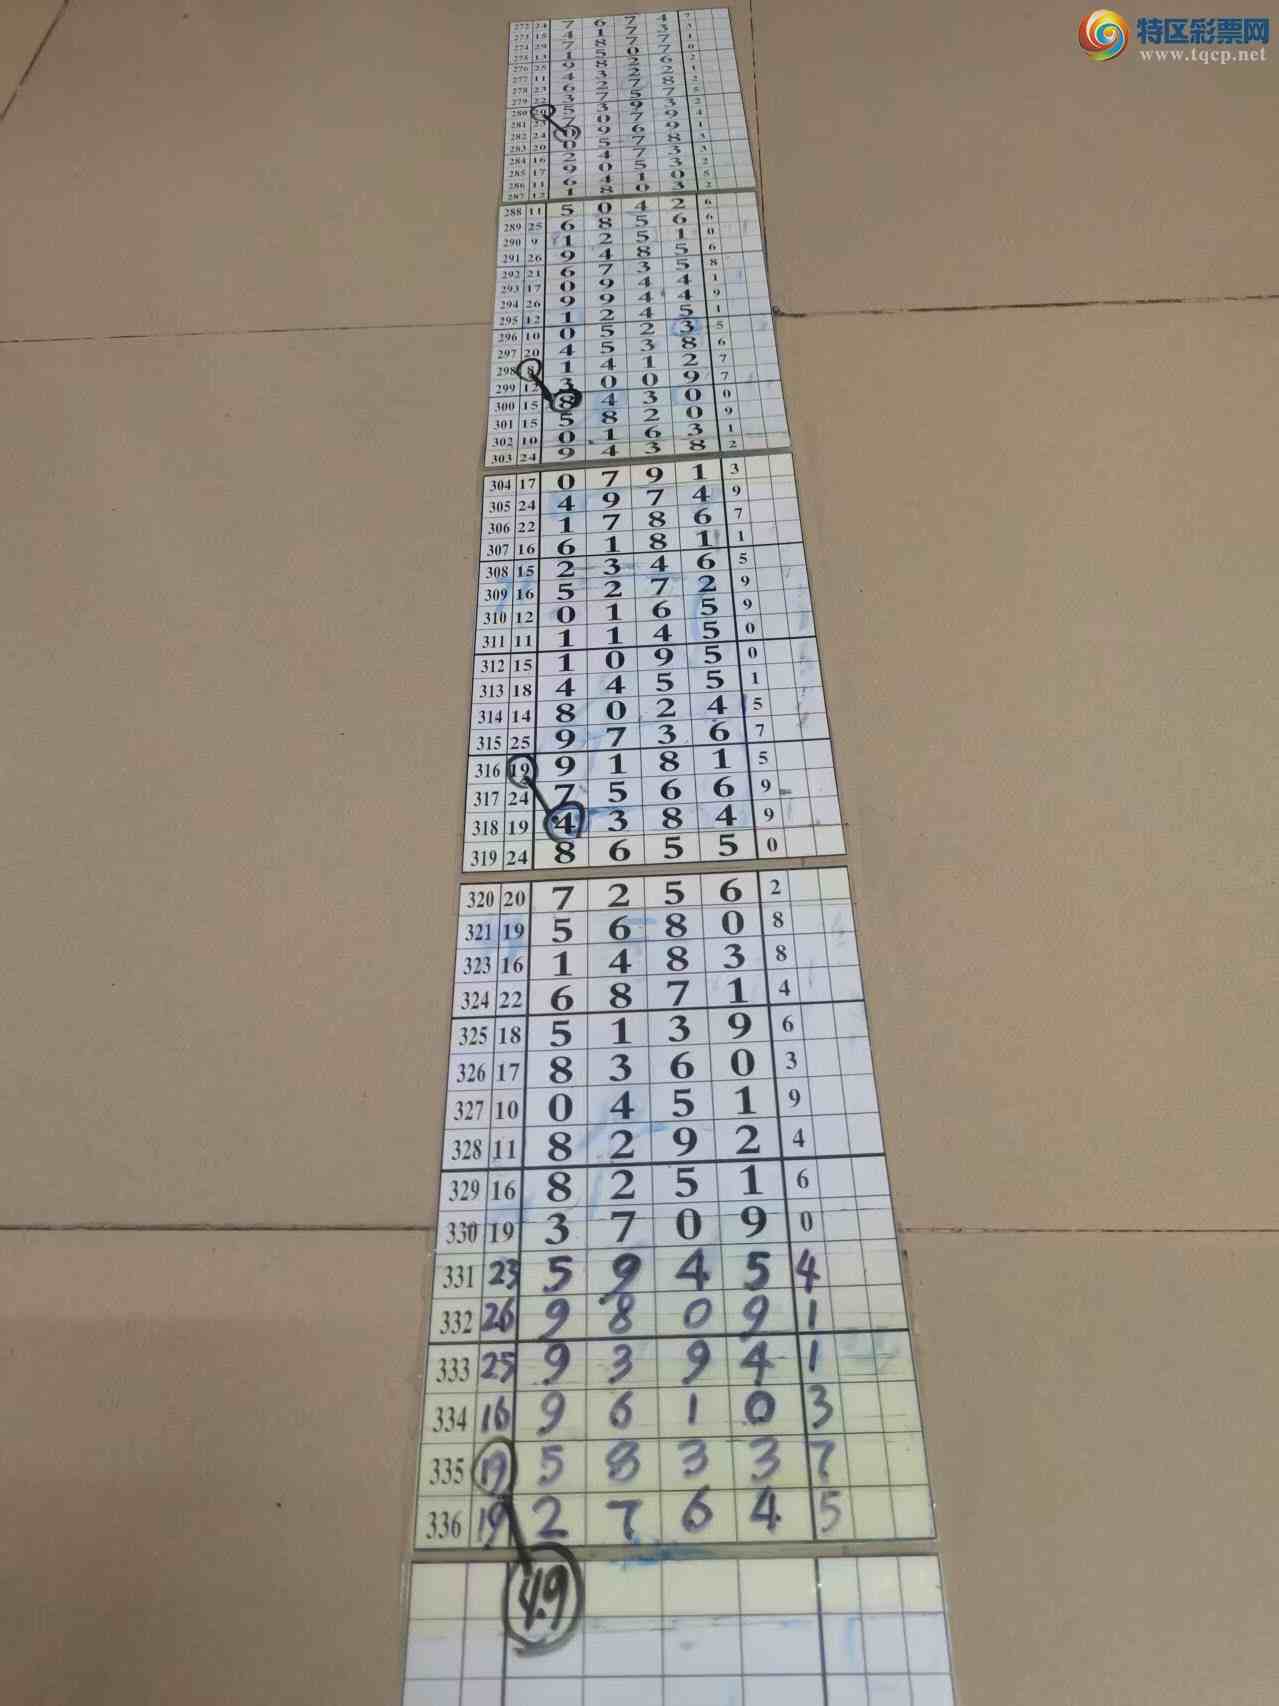 特区彩票网
www.tqcp.net
272 24 7 6 7 4 7
273 15 4 1 7 3 3
274 29 7 8 7 7 1
275 13 1 5 0 7 0
276 25 9 8 2 6 2
277 11 4 3 2 2 1
278 23 6 2 7 8 2
279 22 3 7 5 7 5
280 20 5 3 9 3 2
281 23 7 0 7 9 4
282 24 0 9 6 9 1
283 20 0 5 7 8 3
284 16 2 4 7 3 3
285 17 9 0 5 3 2
286 11 6 4 1 0 5
287 12 1 8 0 3 2
288 11 5 0 4 2 6
289 25 6 8 5 6 6
290 9 1 2 5 1 0
291 26 9 4 8 5 6
292 21 6 7 3 5 8
293 17 0 9 4 4 1
294 26 9 9 4 4 9
295 12 1 2 4 5 1
296 10 0 5 2 3 5
297 20 4 5 3 8 6
298 8 1 4 1 2 7
299 12 3 0 0 9 7
300 15 8 4 3 0 0
301 15 5 8 2 0 9
302 10 0 1 6 3 1
303 24 9 4 3 8 2
304 17 0 7 9 1 3
305 24 4 9 7 4 9
306 22 1 7 8 6 7
307 16 6 1 8 1 1
308 15 2 3 4 6 5
309 16 5 2 7 2 9
310 12 0 1 6 5 9
311 11 1 1 4 5 0
312 15 1 0 9 5 0
313 18 4 4 5 5 1
314 14 8 0 2 4 5
315 25 9 7 3 6 7
316 19 9 1 8 1 5
317 24 7 5 6 6 9
318 19 4 3 8 4 9
319 24 8 6 5 5 0
320 20 7 2 5 6 2
321 19 5 6 8 0 8
323 16 1 4 8 3 8
324 22 6 8 7 1 4
325 18 5 1 3 9 6
326 17 8 3 6 0 3
327 10 0 4 5 1 9
328 11 8 2 9 2 4
329 16 8 2 5 1 6
330 19 3 7 0 9 0
331 23 5 9 4 5 4
332 26 9 8 0 9 1
333 25 9 3 9 4 1
334 16 9 6 1 0 3
335 19 5 8 3 3 7
336 19 2 7 6 4 5
4.9